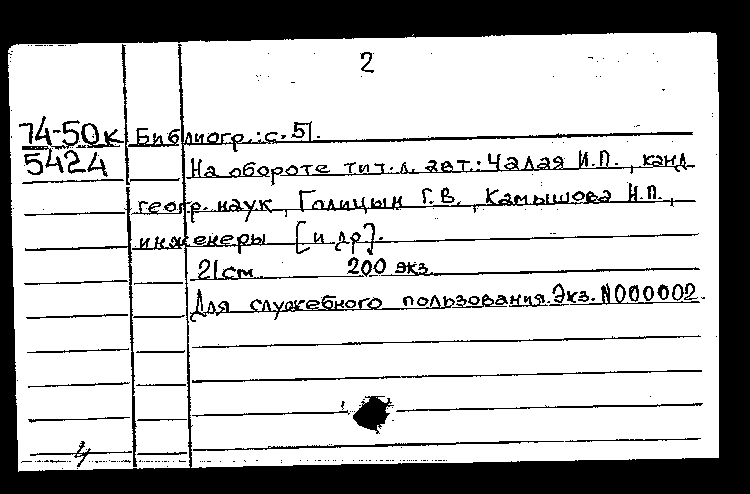 2
74-50к Библиогр.: с. 51.
5424 На обороте тит. л. авт.: Чалая И.П., канд
геогр. наук, Голицын Г.В., Камышова Н.П.,
инженеры [и др].
21 см 200 экз.
Для служебного пользования. Экз. N000002.